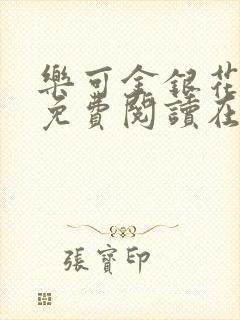 樂可金銀花
免費閱讀在
張寶印